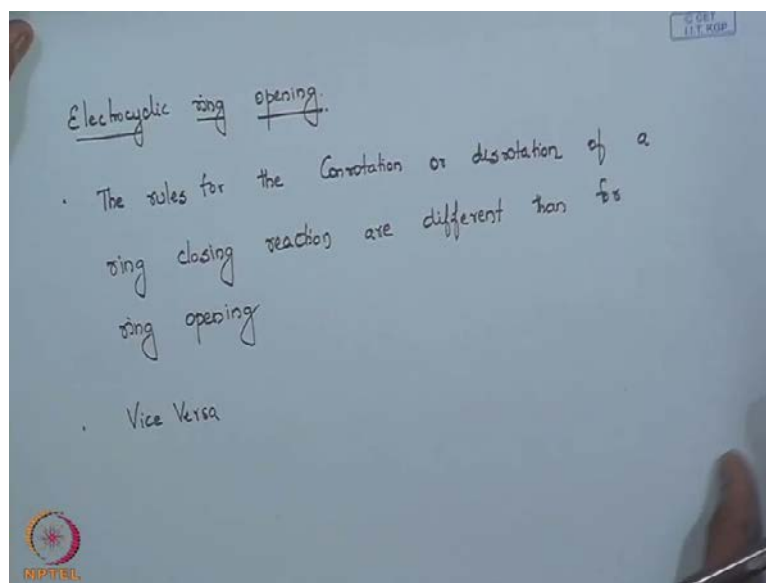 © CET
I.I.T. KGP
Electrocyclic ring opening.
. The rules for the Conrotation or disrotation of a
ring closing reaction are different than for
ring opening
. Vice Versa
NPTEL